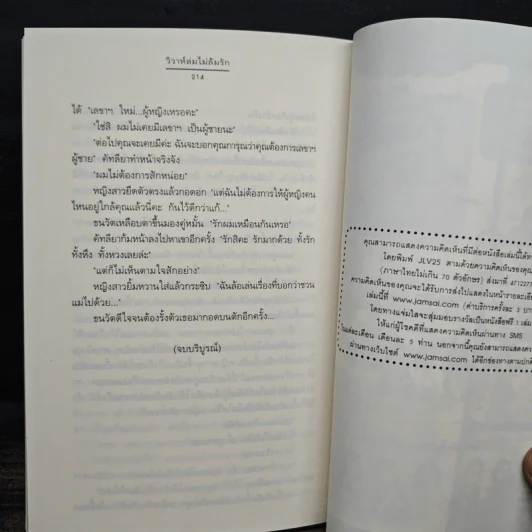 วิวาห์ล่มไม่ล้มรัก
214
ได้ "เลขาฯ ใหม่...ผู้หญิงเหรอคะ"
"ใช่สิ ผมไม่เคยมีเลขาฯ เป็นผู้ชายนะ"
"ต่อไปคุณจะเคยมีค่ะ ฉันจะบอกคุณการุณว่าคุณต้องการเลขาฯ
ผู้ชาย" คัทลียาทำหน้าจริงจัง
"ผมไม่ต้องการสักหน่อย"
หญิงสาวยืดตัวตรงแล้วกอดอก "แต่ฉันไม่ต้องการให้ผู้หญิงคน
ไหนอยู่ใกล้คุณแล้วนี่คะ กันไว้ดีกว่าแก้..."
ธนวัตเหลือบตาขึ้นมองคู่หมั้น "รักผมเหมือนกันเหรอ"
คัทลียาก้มหน้าลงไปหาเขาอีกครั้ง "รักสิคะ รักมากด้วย ทั้งรัก
ทั้งหึง ทั้งหวงเลยล่ะ"
"แต่ก็ไม่เห็นตามใจสักอย่าง"
หญิงสาวยิ้มหวานใส่แล้วกระซิบ "ฉันล้อเล่นเรื่องที่บอกว่าชวน
แม่ไปด้วย..."
ธนวัตดีใจจนต้องรั้งตัวเธอมากอดบนตักอีกครั้ง...
(จบบริบูรณ์)
คุณสามารถแสดงความคิดเห็นที่มีต่อหนังสือเล่มนี้ได้
โดยพิมพ์ JLV25 ตามด้วยความคิดเห็นของคุณ
(ภาษาไทยไม่เกิน 70 ตัวอักษร) ส่งมาที่
ความคิดเห็นของคุณจะได้รับการส่งไปแสดงในหน้ารายละเอียด
เล่มนี้ที่ www.jamsai.com (ค่าบริการครั้งละ 3
โดยทางแจ่มใสจะสุ่มมอบรางวัลเป็นหนังสือฟรี 1 เล่ม
ให้แก่ผู้โชคดีที่แสดงความคิดเห็นผ่านทาง SMS
ในแต่ละเดือน เดือนละ 5 ท่าน นอกจากนี้คุณยังสามารถแสดงความ
ผ่านทางเว็บไซต์ www.jamsai.com ได้อีกช่องทางตามปกติ